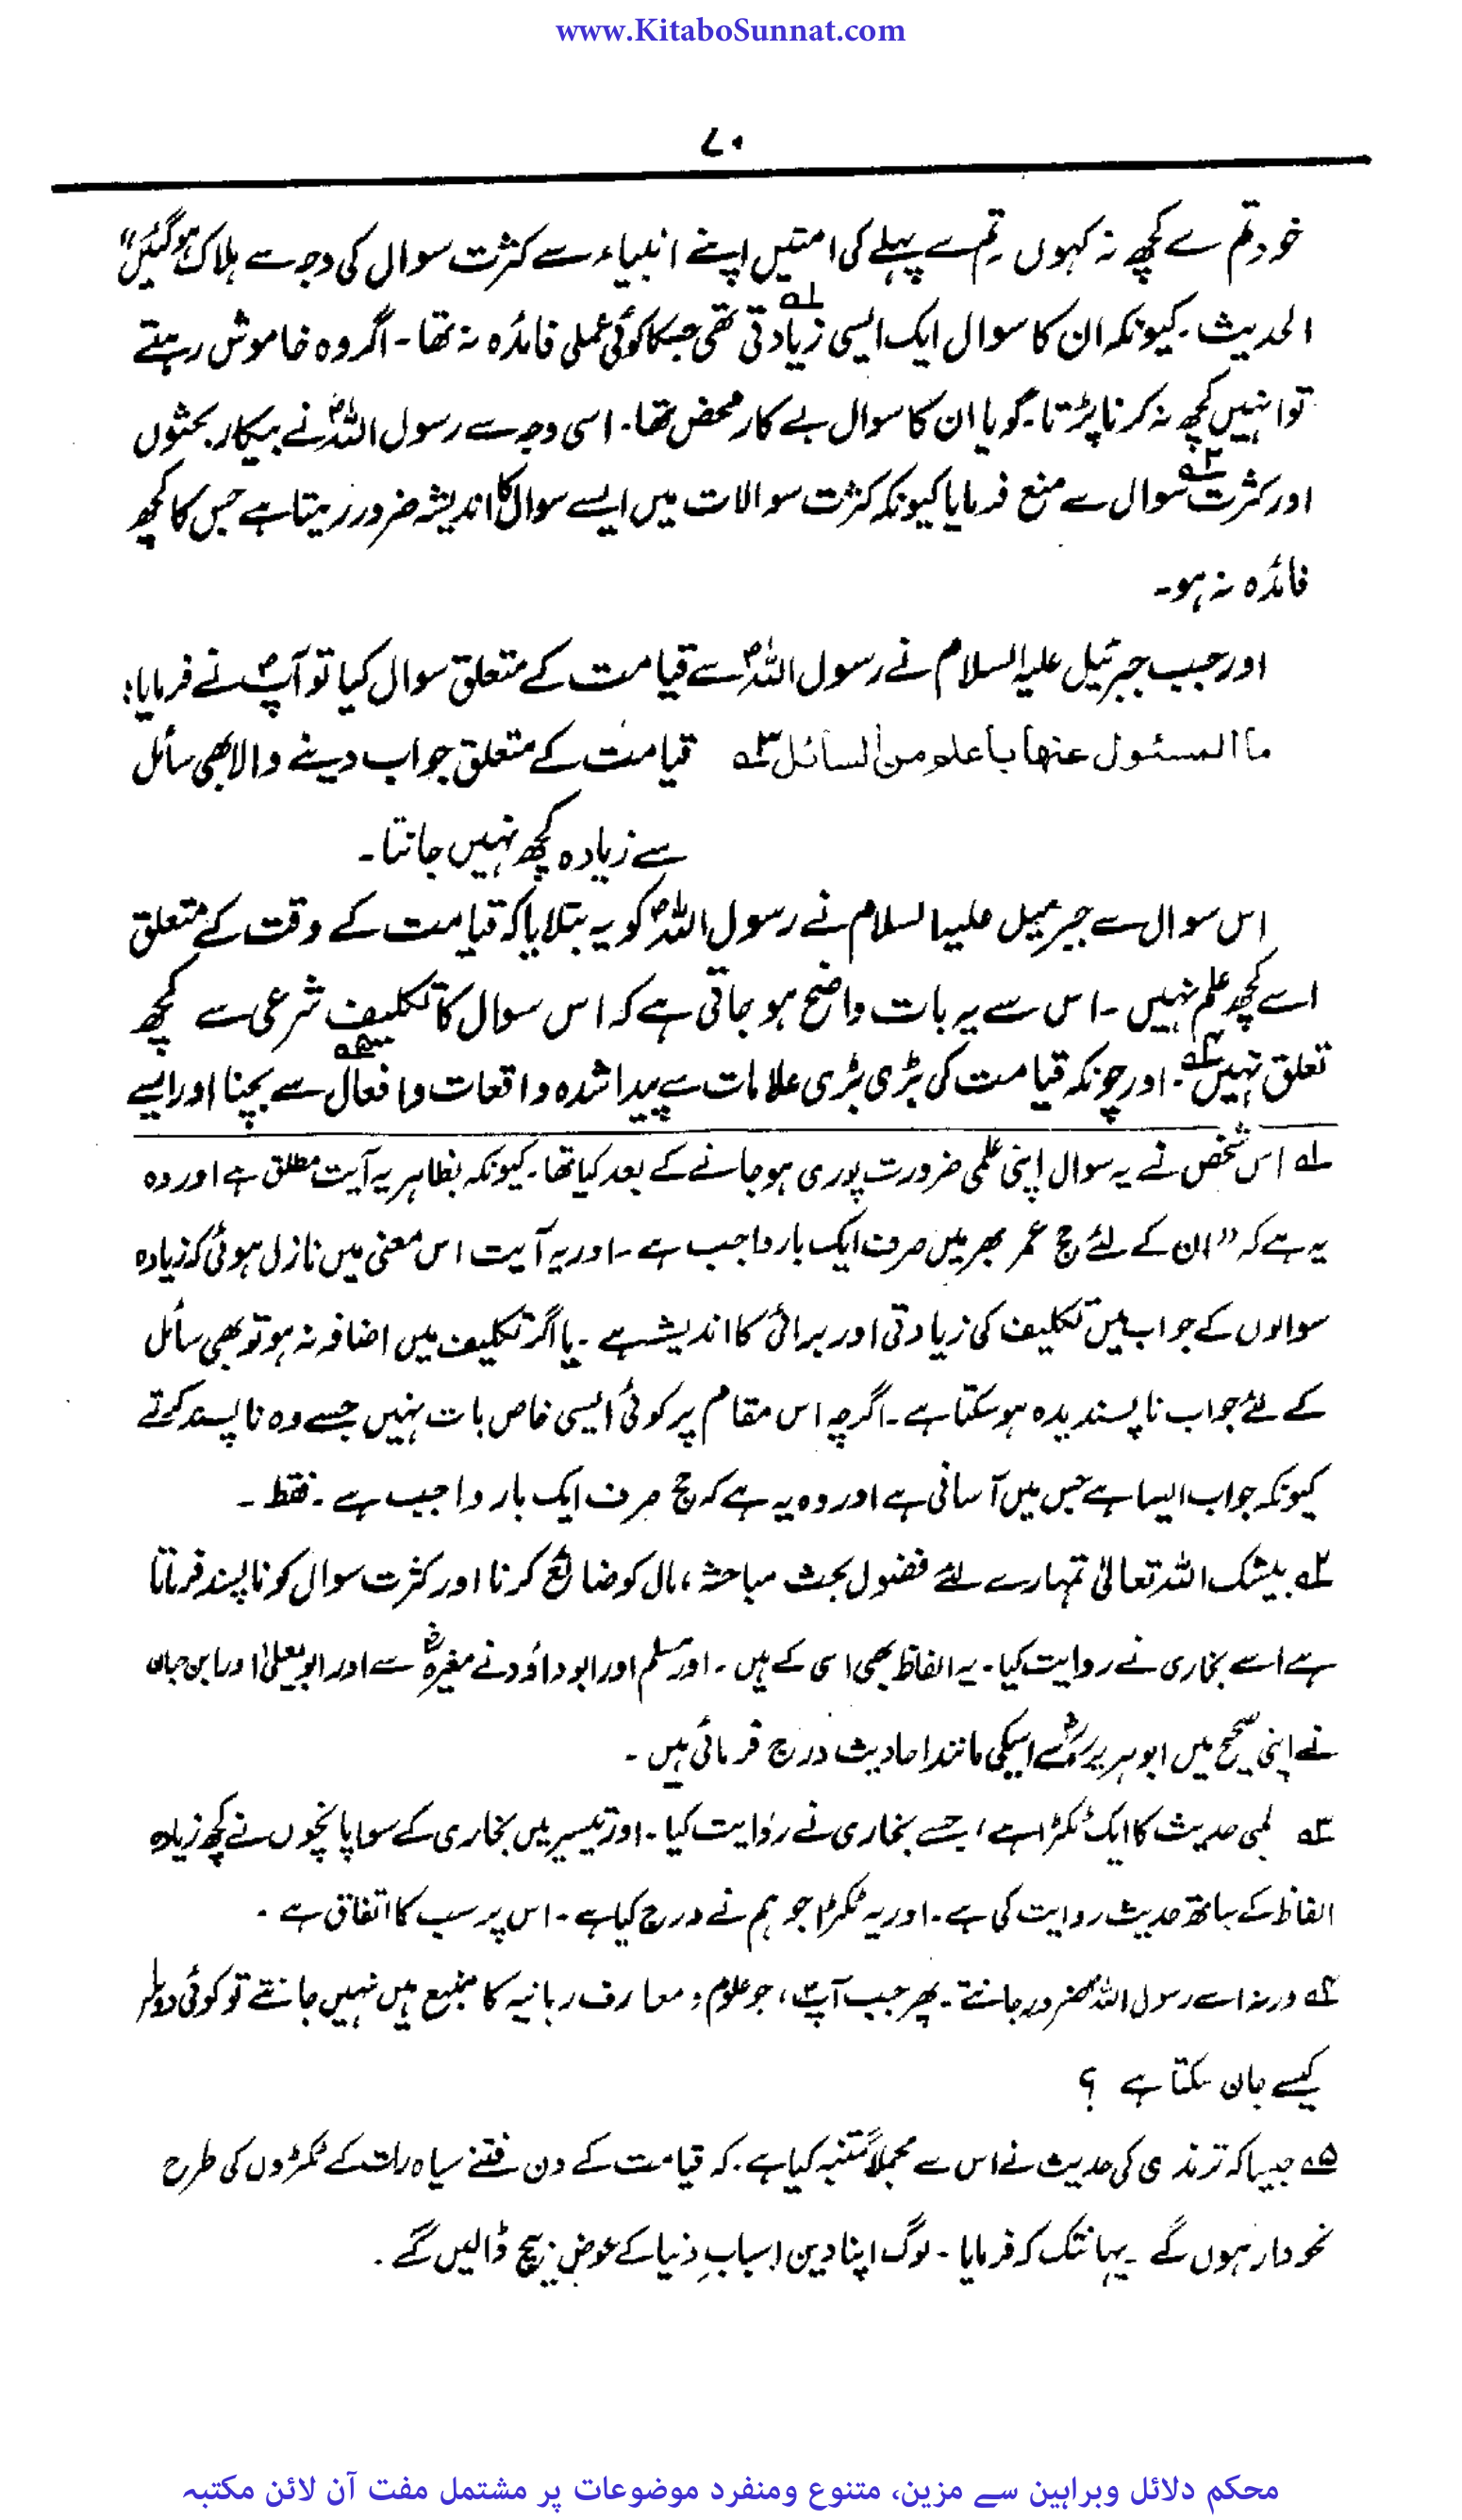 www.KitaboSunnat.com
۷۰
خود تم سے کچھ نہ کہوں۔ تم سے پہلے کی امتیں اپنے انبیاء سے کثرت سوال کی وجہ سے ہلاک ہوگئیں"
الحدیث۔ کیونکہ ان کا سوال ایک ایسی زیادتی تھی جسکا کوئی عملی فائدہ نہ تھا۔ اگر وہ خاموش رہتے
تو انہیں کچھ نہ کرنا پڑتا۔ گویا ان کا سوال بے کار محض تھا۔ اسی وجہ سے رسول اللہؐ نے بیکار بحثوں
اور کثرت سوال سے منع فرمایا کیونکہ کثرت سوالات میں ایسے سوال کا اندیشہ ضرور رہتا ہے جس کا کچھ
فائدہ نہ ہو۔
اور جب جبرئیل علیہ السلام نے رسول اللہؐ سے قیامت کے متعلق سوال کیا تو آپؐ نے فرمایا:
ما المسئول عنھا باعلم من السائل ۳؎ قیامت کے متعلق جواب دینے والا بھی سائل
سے زیادہ کچھ نہیں جانتا۔
اس سوال سے جبرئیل علیہ السلام نے رسول اللہؐ کو یہ بتلایا کہ قیامت کے وقت کے متعلق
اسے کچھ علم نہیں۔ اس سے یہ بات واضح ہو جاتی ہے کہ اس سوال کا تکلیف شرعی سے کچھ
تعلق نہیں۴؎۔ اور چونکہ قیامت کی بڑی بڑی علامات سے پیدا شدہ واقعات و افعال۵؎ سے بچنا اور ایسے
۱؎ اس شخص نے یہ سوال اپنی علمی ضرورت پوری ہو جانے کے بعد کیا تھا۔ کیونکہ بظاہر یہ آیت مطلق ہے اور وہ
یہ ہے کہ "ان کے لئے حج عمر بھر میں صرف ایک بار واجب ہے۔ اور یہ آیت اس معنی میں نازل ہوئی کہ زیادہ
سوالوں کے جواب میں تکلیف کی زیادتی اور برائی کا اندیشہ ہے۔ یا اگر تکلیف میں اضافہ نہ ہو تو بھی سائل
کے لئے جواب ناپسندیدہ ہو سکتا ہے۔ اگرچہ اس مقام پر کوئی ایسی خاص بات نہیں جسے وہ ناپسند کرتے
کیونکہ جواب ایسا ہے جس میں آسانی ہے اور وہ یہ ہے کہ حج صرف ایک بار واجب ہے۔ فقط۔
۲؎ بیشک اللہ تعالیٰ تمہارے لئے فضول بحث مباحثہ، مال کو ضائع کرنا اور کثرت سوال کو ناپسند فرماتا
ہے اسے بخاری نے روایت کیا۔ یہ الفاظ بھی اسی کے ہیں۔ اور مسلم اور ابو داؤد نے مغیرہؓ سے اور ابو یعلیٰ اور ابن حبان
نے اپنی صحیح میں ابو ہریرہؓ سے اسکی مانند احادیث درج فرمائی ہیں۔
۳؎ لمبی حدیث کا ایک ٹکڑا ہے، جسے بخاری نے روایت کیا۔ اور تیسیر میں بخاری کے سوا پانچوں نے کچھ زیادہ
الفاظ کے ساتھ حدیث روایت کی ہے۔ اور یہ ٹکڑا جو ہم نے درج کیا ہے۔ اس پر سب کا اتفاق ہے۔
۴؎ ورنہ اسے رسول اللہؐ ضرور جانتے۔ پھر جب آپؐ، جو علوم و معارف ربانیہ کا منبع ہیں نہیں جانتے تو کوئی دوسرا
کیسے جان سکتا ہے ؟
۵؎ جیسا کہ ترمذی کی حدیث نے اس سے مجملاً متنبہ کیا ہے۔ کہ قیامت کے دن فتنے سیاہ رات کے ٹکڑوں کی طرح
نمودار ہوں گے۔ یہانتک کہ فرمایا۔ لوگ اپنا دین اسبابِ دنیا کے عوض بیچ ڈالیں گے۔
محکم دلائل وبراہین سے مزین، متنوع ومنفرد موضوعات پر مشتمل مفت آن لائن مکتبہ